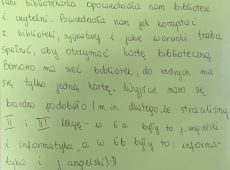 Pani bibliotekarka opowiedziała nam bibliotece
i czytelni. Powiedziała nam jak korzystać
z biblioteki, sygnatury i jakie warunki trzeba
spełnić, aby otrzymać kartę biblioteczną.
ma sieć bibliotek, do których ma
się tylko jedną kartę. Wyjście nam się
bardzo podobało / m.in. dlatego, że straciliśmy
II i III lekcję - w 6a były to j. angielski
i informatyka, a w 6b były to: informa-
tyka i j. angielski):)